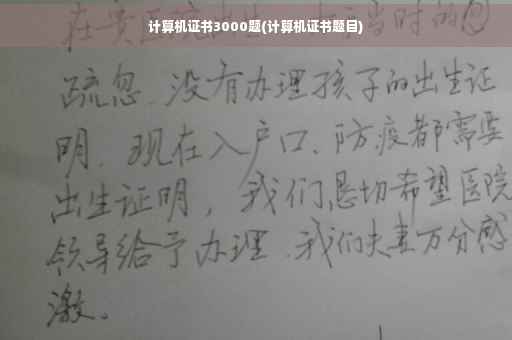 计算机证书3000题(计算机证书题目)
当时的
疏忽、没有办理孩子的出生证
明、现在入户口、防疫都需要
出生证明，我们恳切希望医院
领导给予办理、我们夫妻万分感
激。